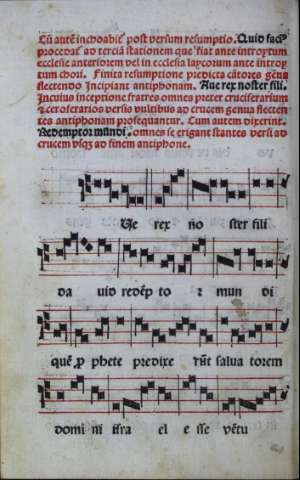 Cū autē inchoabit᷑ post versum resumptio. Quid faciꝰ
procedat ad terciā stationem que fiat ante introytum
ecclesie anteriorem vel in ecclesia laycorum ante introy
tum chori. Finita resumptione predicta cātores genu
flectendo Incipiant antiphonam. Aue rex noster fili.
In cuius inceptione fratres omnes preter cruciferarium
⁊ ceroferarios versis vultibus ad crucem genua flecten
tes antiphonam prosequantur. Cum autem dixerint.
Redemptor mundi. omnes se erigant stantes versi ad
crucem vsqꝫ ad finem antiphone.
Ue rex no ster fili
da uid redēp to r mun di
quē ꝓ phete predixe rūt salua torem
domi ni isra el e sse vētu